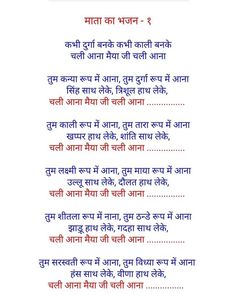 माता का भजन - १
कभी दुर्गा बनके कभी काली बनके
चली आना मैया जी चली आना
तुम कन्या रूप में आना, तुम दुर्गा रूप में आना
सिंह साथ लेके, त्रिशूल हाथ लेके,
चली आना मैया जी चली आना ................
तुम काली रूप में आना, तुम तारा रूप में आना
खप्पर हाथ लेके, शांति साथ लेके,
चली आना मैया जी चली आना ................
तुम लक्ष्मी रूप में आना, तुम माया रूप में आना
उल्लू साथ लेके, दौलत हाथ लेके,
चली आना मैया जी चली आना ................
तुम शीतला रूप में नाना, तुम ठन्डे रूप में आना
झाडू हाथ लेके, गदहा साथ लेके,
चली आना मैया जी चली आना ................
तुम सरस्वती रूप में आना, तुम विध्या रूप में आना
हंस साथ लेके, वीणा हाथ लेके,
चली आना मैया जी चली आना ................